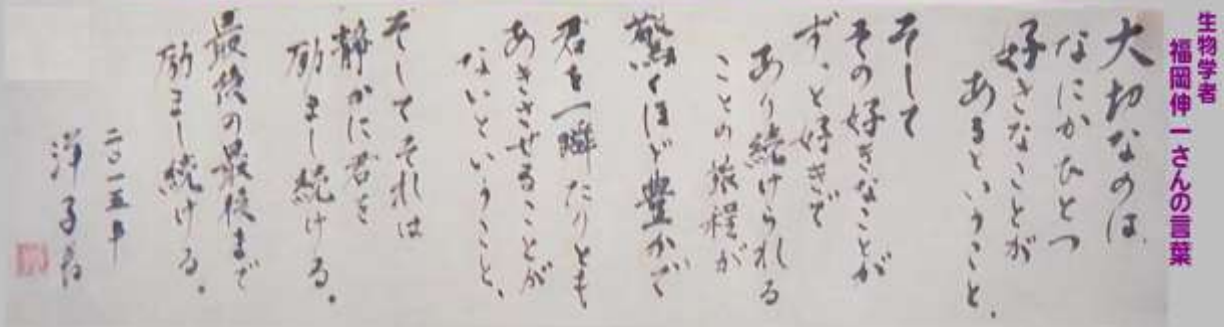 生物学者
福岡伸一さんの言葉
大切なのは、
なにかひとつ
好きなことが
あるということ、
そして
その好きなことが
ずっと好きで
あり続けられる
ことの旅程が
驚くほど豊かで
君を一瞬たりとも
あきさせることが
ないということ、
そしてそれは
静かに君を
励まし続ける。
最後の最後まで
励まし続ける。
二〇一五年
洋子書